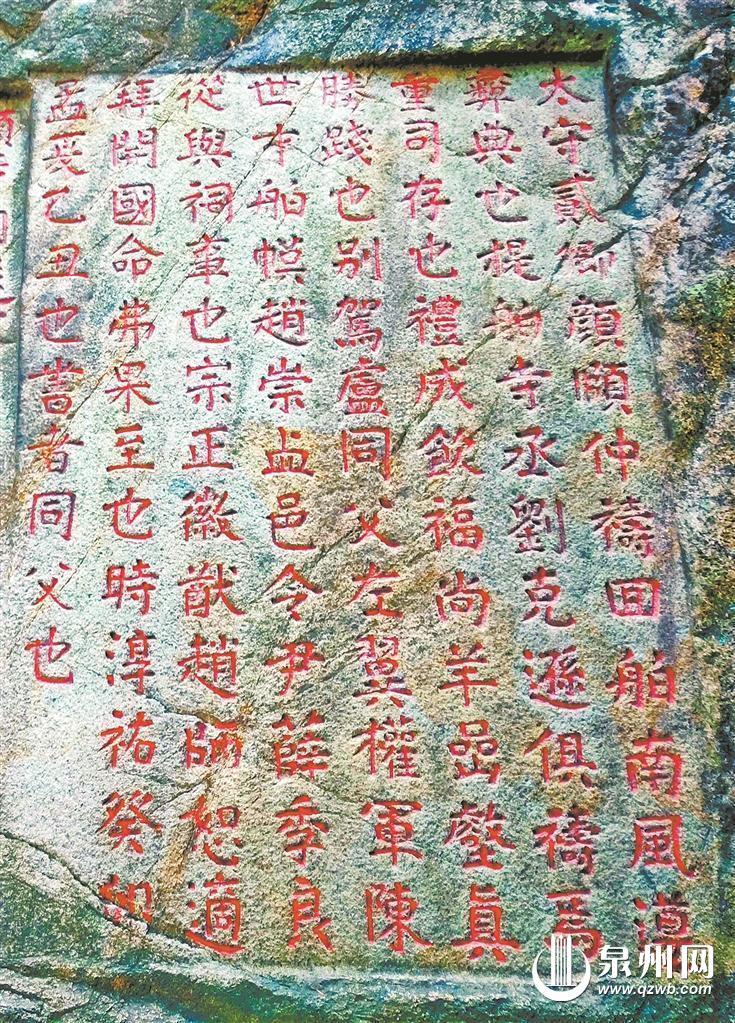 太守貳卿顏頤仲禱回舶南風遵
彞典也提舶寺丞劉克遜俱禱焉
重司存也禮成飲福尚羊嵒壑真
勝踐也别駕盧同父左翼權軍陳
世才舶幙趙崇邑令尹薛季良
從與祠事也宗正徽猷趙師恕適
拜開國命弗果至也時淳祐癸卯
孟冬乙丑也書者同父也
泉州网
www.qzwb.com